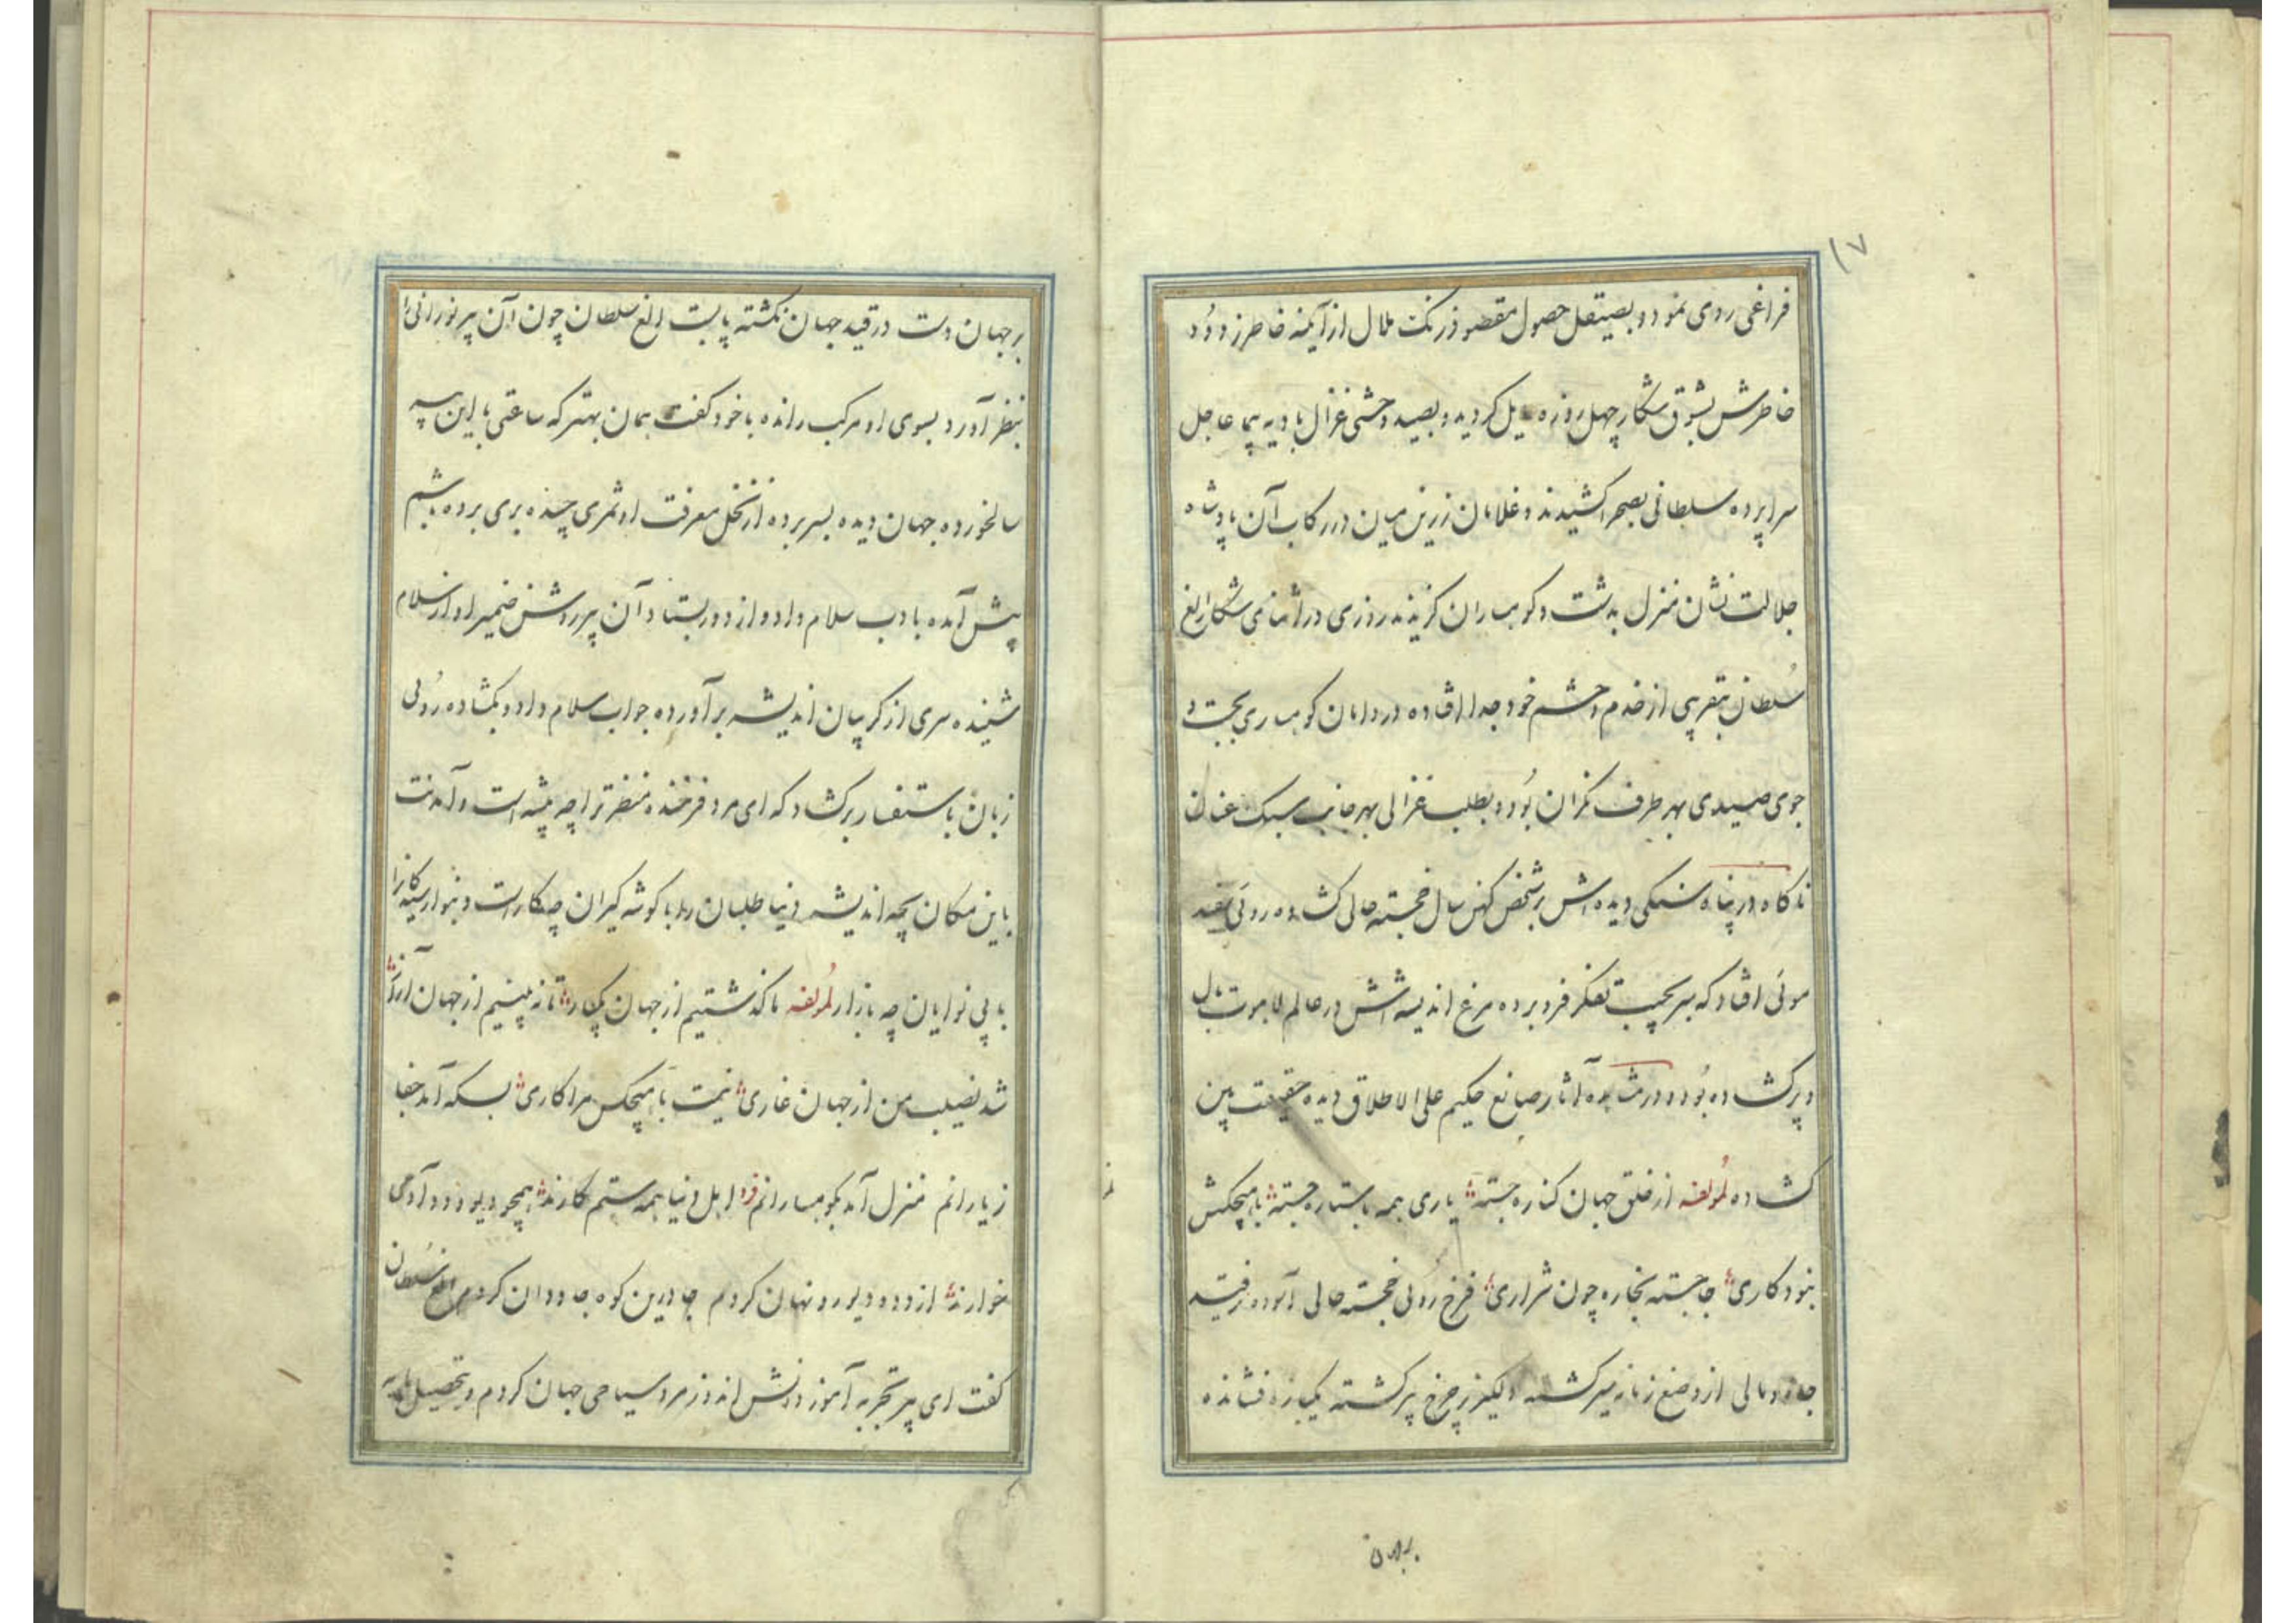 ۱۷
فراغی روی نمود و بصیقل حصول مقصود زنک ملال از آینه خاطر زدود
خاطرش بشوق شکار چهل روزه مایل کردید و بصید وحشی غزال بادیه پیما عاجل
سراپرده سلطانی بصحرا کشیدند و غلامان زرین میان در رکاب آن پادشاه
جلالت نشان منزل بدشت و کوهساران کزیدند روزی در اثنای شکار الغ
سُلطان بتقریبی از خدم و حشم خود جدا افتاده در دامان کوهساری بجست و
جوی صیدی بهر طرف نکران بُود و بطلب غزالی بهر جانب سبک عنان
ناکاه در پناه سنکی دیده‌اش بر شخص کهن سال خجسته حالی کشاده روئی سفید
موئی افتاد که سر بجیب تفکر فرو برده مرغ اندیشه‌اش در عالم لاهوت بال
و پر کشاده بُود و در مشاهده آثار صانع حکیم علی الاطلاق دیده حقیقت بین
کشاده لمُولفه از خلق جهان کناره جسته یاری همه با ستاره جسته با هیچکش
نبود کاری جا جسته بخاره چون شراری فرخ رُوئی خجسته حالی آسوده ز قید
جاه و مالی از وضع زمانه سیر کشته دلکیر ز چرخ پیر کشته یکباره فشانده
بر جهان
بر جهان دست در قید جهان نکشته پا بست الغ سلطان چون آن پیر نورانی را
بنظر آورد بسوی او مرکب رانده با خود کفت همان بهتر که ساعتی با این پیر
سالخورده جهان دیده بسر برده از نخل معرفت او ثمری چیده بری برده باشم
پیش آمده با دب سلام داد و از دور بستاد آن پیر روشن ضمیر آواز سلام
شنیده سری از کریبان اندیشه برآورده جواب سلام داد و بکشاده رُوئی
زبان باستفسار برکشاد که ای مرد فرخنده منظر ترا چه پیشه است و آمدنت
باین مکان بچه اندیشه دنیا طلبان را با کوشه کیران چکار است و بنوا رسیدکانرا
با بی نوایان چه بازار لمُولفه ما کذشتیم از جهان یکبار تا نه بینیم از جهان آزار
شد نصیب من از جهان غاری نیست با هیچکس مرا کاری بسکه آمد جفا
ز یارانم منزل آمد بکوهسارانم فرد اهل دنیا همه ستم کارند همچو دیو و دد آدمی
خوارند از دد و دیو رو نهان کردم جا درین کوه جاودان کردم الغ سُلطان
کفت ای پیر تجربه آموز و دانش اندوز مرد سیاحی جهان کردم و بتحصیل